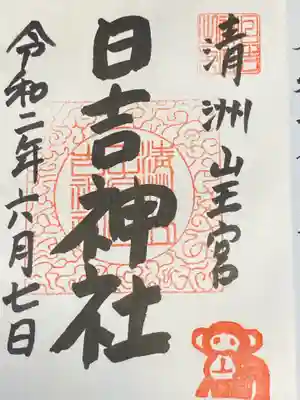 清洲山王宮
日吉神社
令和二年六月七日
上